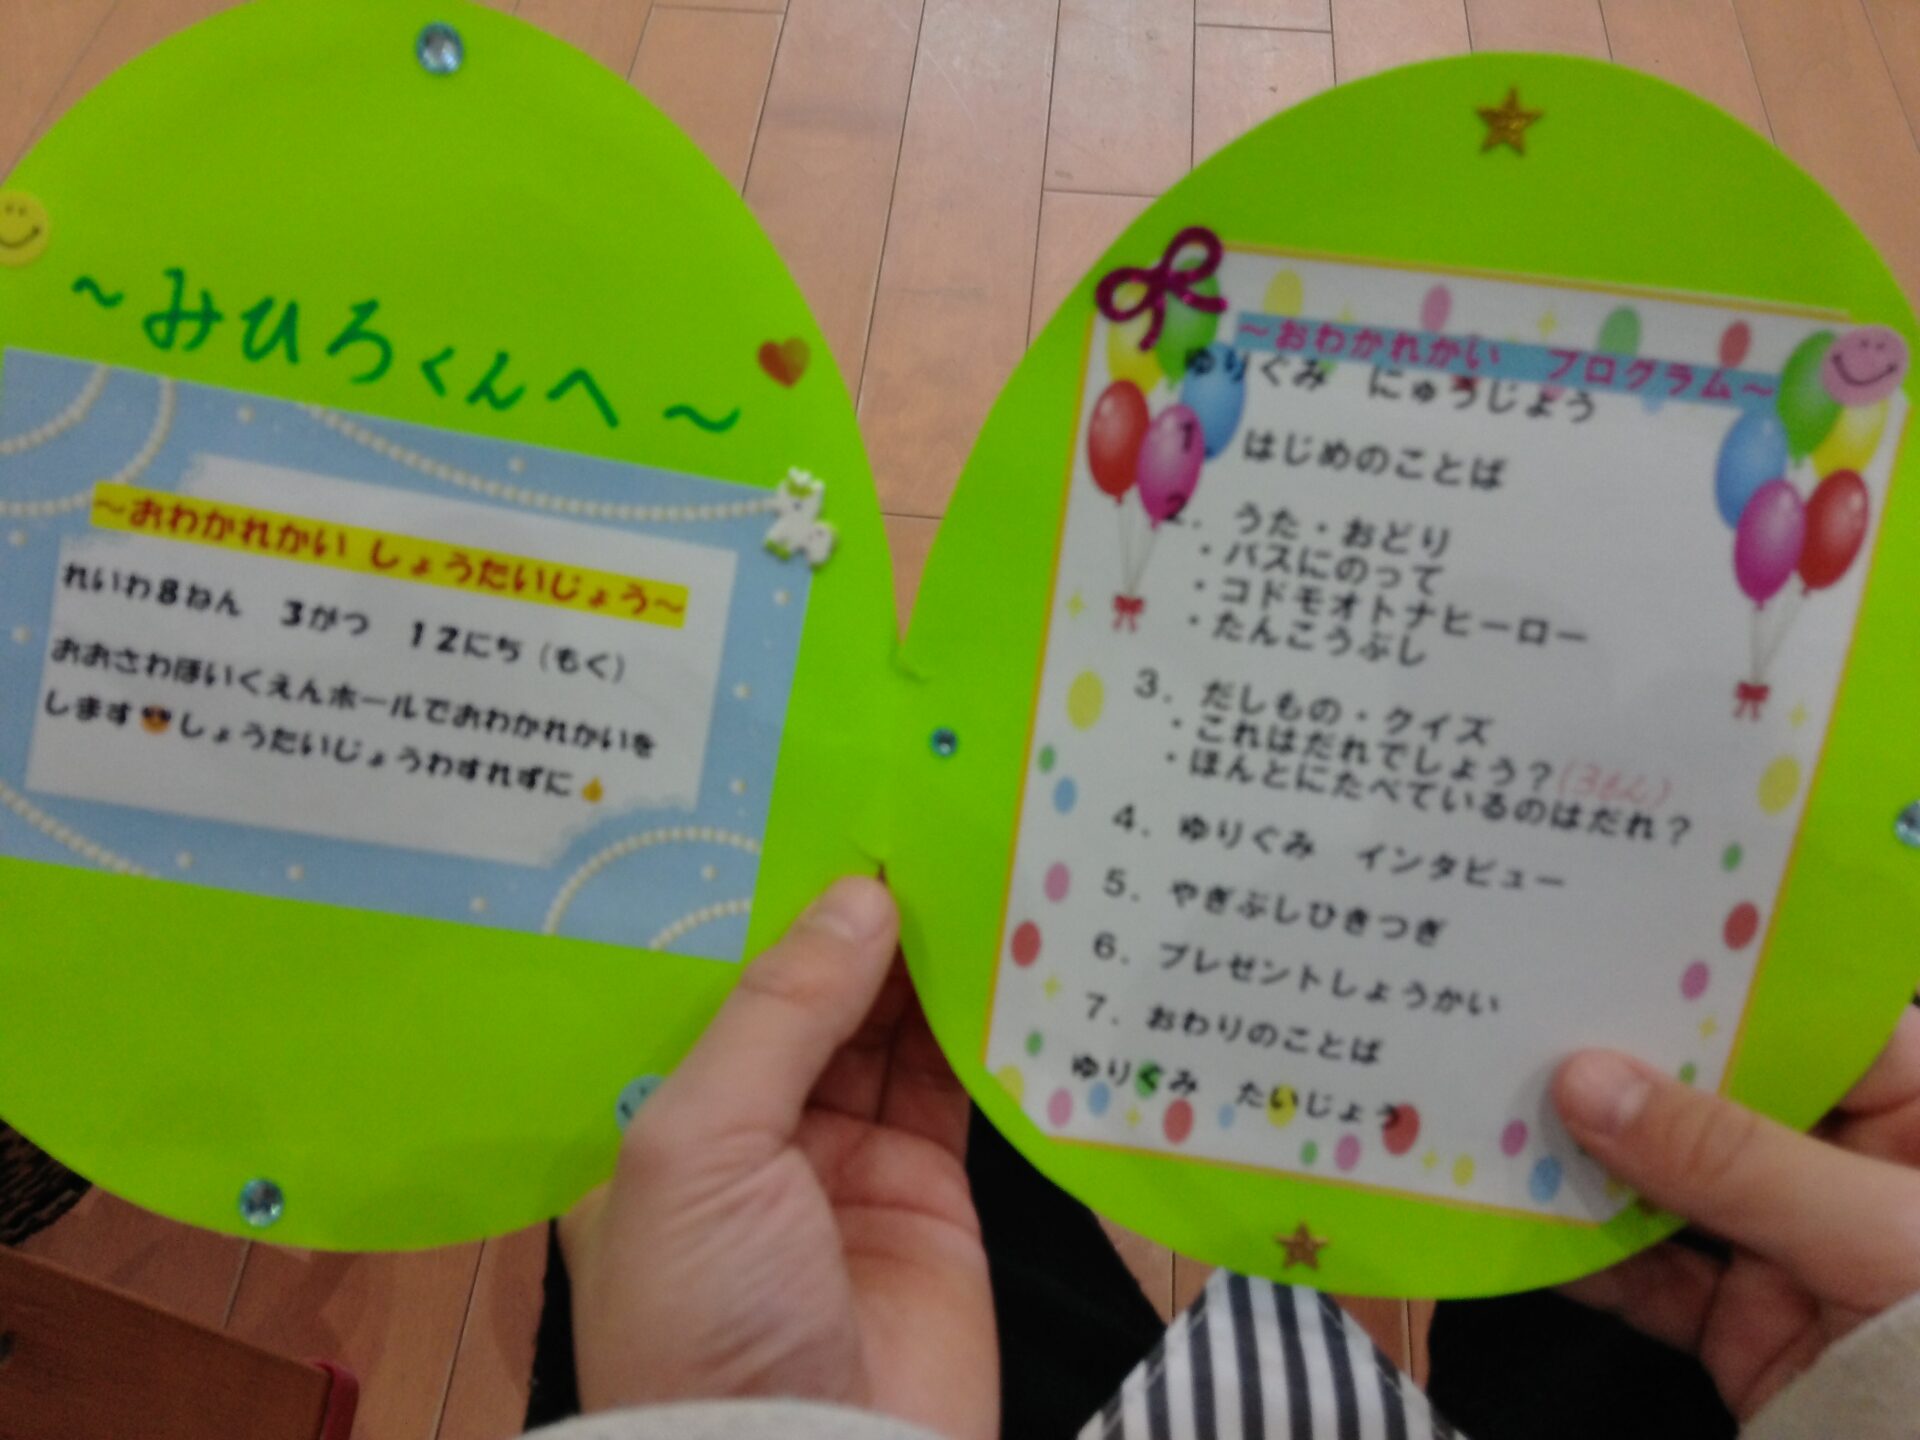 ～みひろくんへ～
～おわかれかい しょうたいじょう～
れいわ8ねん 3がつ 12にち（もく）
おおさわほいくえんホールでおわかれかいを
します😎しょうたいじょうわすれずに👍
～おわかれかい プログラム～
ゆりぐみ にゅうじょう
1 はじめのことば
2．うた・おどり
・バスにのって
・コドモオトナヒーロー
・たんこうぶし
3．だしもの・クイズ
・これはだれでしょう？(3もん)
・ほんとにたべているのはだれ？
4．ゆりぐみ インタビュー
5．やぎぶしひきつぎ
6．プレゼントしょうかい
7．おわりのことば
ゆりぐみ たいじょう